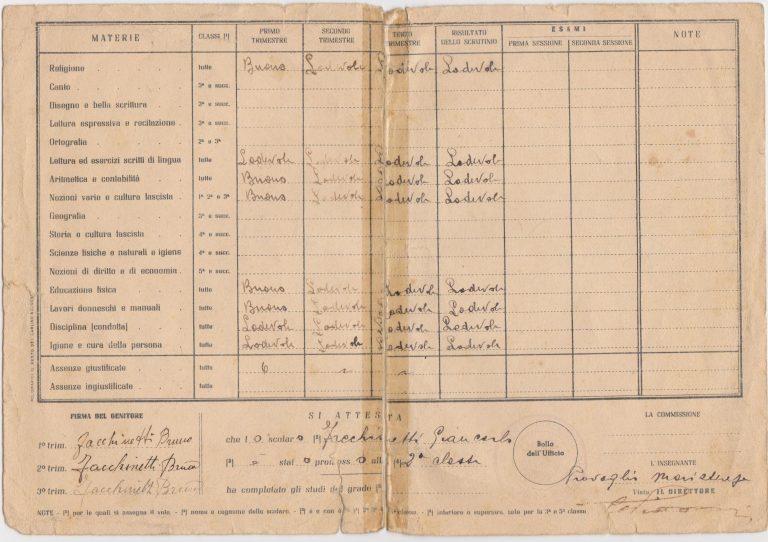 MATERIE CLASSI [¹] PRIMO TRIMESTRE SECONDO TRIMESTRE TERZO TRIMESTRE RISULTATO DELLO SCRUTINIO ESAMI PRIMA SESSIONE SECONDA SESSIONE NOTE
Religione tutte Buono Lodevole Lodevole Lodevole
Canto 3ª e succ.
Disegno e bella scrittura 2ª e succ.
Lettura espressiva e recitazione e succ.
Ortografia 2ª e 3ª
Lettura ed esercizi scritti di lingua tutte Lodevole Lodevole Lodevole Lodevole
Aritmetica e contabilità tutte Buono Lodevole Lodevole Lodevole
Nozioni varie e cultura fascista 1ª 2ª e 3ª Buono Lodevole Lodevole Lodevole
Geografia 3ª e succ.
Storia e cultura fascista 4ª e succ.
Scienze fisiche e naturali e igiene 4ª e succ.
Nozioni di diritto e di economia 5ª e succ.
Educazione fisica tutte Buono Lodevole Lodevole Lodevole
Lavori donneschi e manuali tutte Buono Lodevole Lodevole Lodevole
Disciplina (condotta) tutte Lodevole Lodevole Lodevole Lodevole
Igiene e cura della persona tutte Lodevole Lodevole Lodevole Lodevole
Assenze giustificate tutte 6 " "
Assenze ingiustificate tutte
FIRMA DEL GENITORE
1º trim. Facchinetti Bruno
2º trim. Facchinetti Bruno
3º trim. Facchinetti Bruno
SI ATTESTA
che l o scolar o [²] Facchinetti Giancarlo
[³] è stat o promosso all 2ª classe
ha completato gli studi del grado [⁴]
Bollo dell'Ufficio
LA COMMISSIONE
L'INSEGNANTE
Visto IL DIRETTORE
NOTE - [¹] per le quali si assegna il voto. - [²] nome e cognome dello scolaro. - [³] è e con o inferiore o superiore, solo per la 3ª e 5ª classe